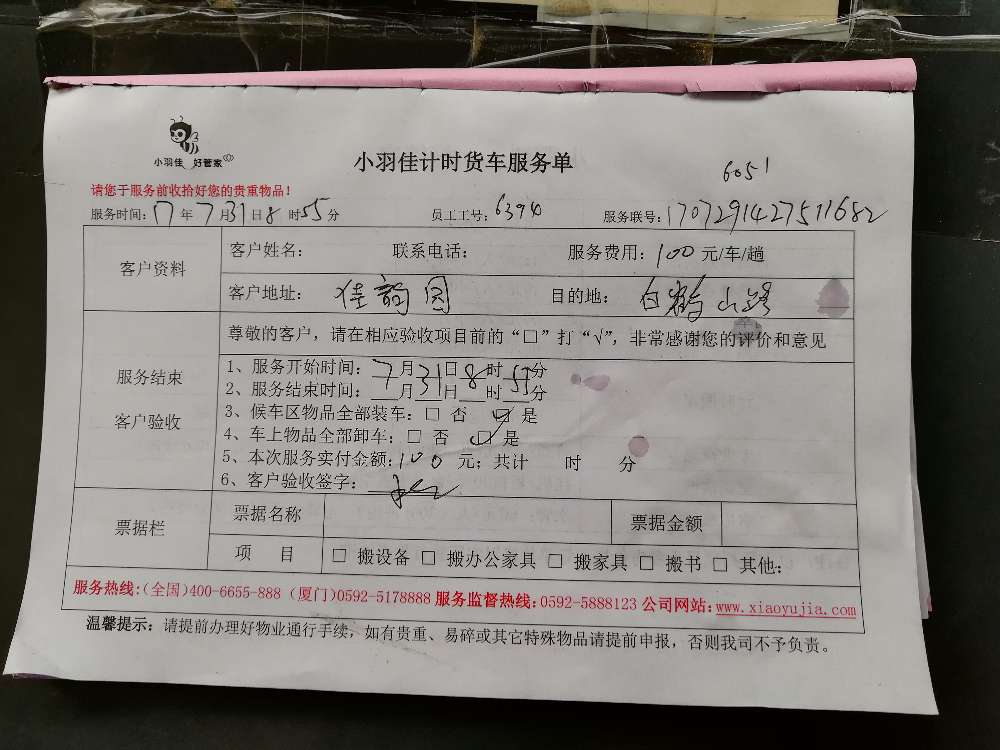 小羽佳 好管家
小羽佳计时货车服务单
6051
请您于服务前收拾好您的贵重物品！
服务时间：17年7月31日8时55分 员工工号：6394 服务联号：1707291427511682
客户资料
客户姓名： 联系电话： 服务费用：100元/车/趟
客户地址： 佳韵园 目的地： 白鹤山路
服务结束
客户验收
尊敬的客户，请在相应验收项目前的“□”打“√”，非常感谢您的评价和意见
1、服务开始时间：7月31日8时55分
2、服务结束时间：___月___日___时___分
3、候车区物品全部装车：□ 否 ☑ 是
4、车上物品全部卸车：□ 否 ☑ 是
5、本次服务实付金额：100 元；共计 时 分
6、客户验收签字：
票据栏
票据名称 票据金额
项 目 □ 搬设备 □ 搬办公家具 □ 搬家具 □ 搬书 □ 其他：
服务热线：(全国)400-6655-888 (厦门)0592-5178888 服务监督热线：0592-5888123 公司网站：www.xiaoyujia.com
温馨提示：请提前办理好物业通行手续，如有贵重、易碎或其它特殊物品请提前申报，否则我司不予负责。